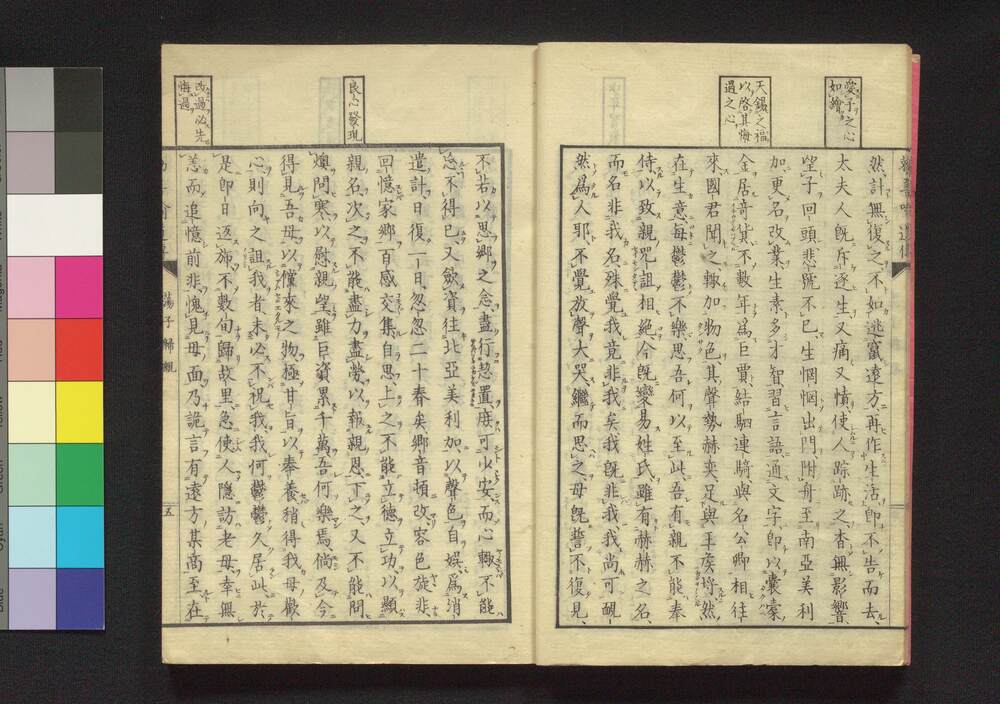 愛子之心
如繪
天錫之福
以啓其悔
過之心
然、計無復之、不如逃竄遠方、再作生活、卽不告而去、
太夫人旣斥逐生、又痛又憤、使人踪跡之、杳無影響、
望子回頭、悲號不已、生惘惘出門、附舟至南亞美利
加、更名改業、生素多才智、習言語、通文字、卽以囊橐
金居奇貨、不數年爲巨賈、結駟連騎、與名公卿相往
來、國君聞之、輙加物色、其聲勢赫奕、足與王矦埒、然
在生意、每鬱鬱不樂、思吾何以至此、吾有親不能奉
侍、以致親咒詛相絕、今旣變易姓氏、雖有赫赫之名、
而名非我名、殊覺我竟非我矣、我旣非我、我尚可靦
然爲人耶、不覺放聲大哭、繼而思之、母旣誓不復見、
良心發現
改過必先
悔過
不若以思鄉之念、盡行懸置、庶可少安、而心輙不能
忘、不得已、又斂資往北亞美利加、以聲色自娛、爲消
遣計、日復一日、忽忽二十春矣、鄉音頓改、容色旋非、
回憶家鄉、百感交集、自思、上之不能立德立功以顯
親名、次之不能盡力盡勞以報親恩、下之又不能問
燠問寒、以慰親望、雖巨資累千萬、吾何樂焉、倘及今
得見吾母、以儻來之物、極甘旨以奉養、稍得我母歡
心、則向之詛我者、未必不祝我、我何鬱鬱久居此、於
是卽日返旆、不數旬歸故里、急使人隱訪老母、幸無
恙、而追憶前非、愧見母面、乃詭言有遠方某商至、在
蕩子歸親
五